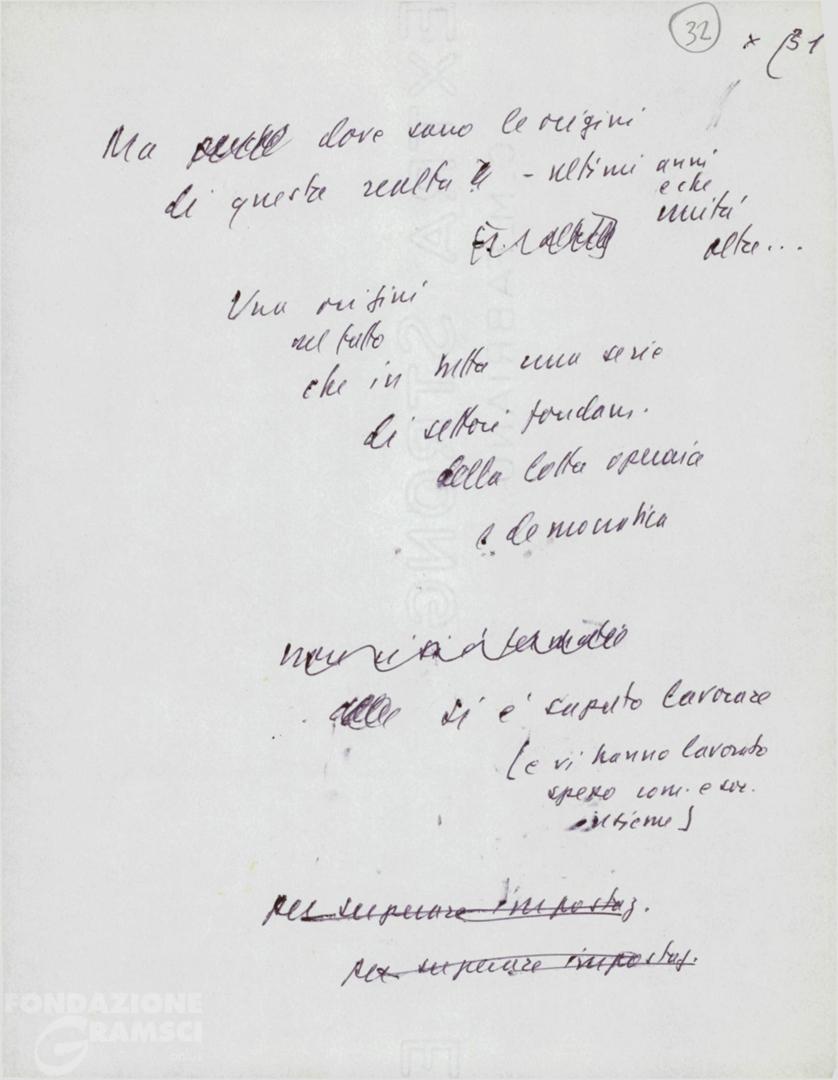 32 x (31
Ma dove sono le origini
di questa realtà - ultimi anni
e che
unità
altre...
Una origini
nel fatto
che in tutta una serie
di settori fondam.
della lotta operaia
e democratica
si è saputo lavorare
(e vi hanno lavorato
spesso com. e soc.
insieme)
per superare impostaz.
per superare impostaz.
FONDAZIONE
GRAMSCI
onlus
EXTRA STRONG